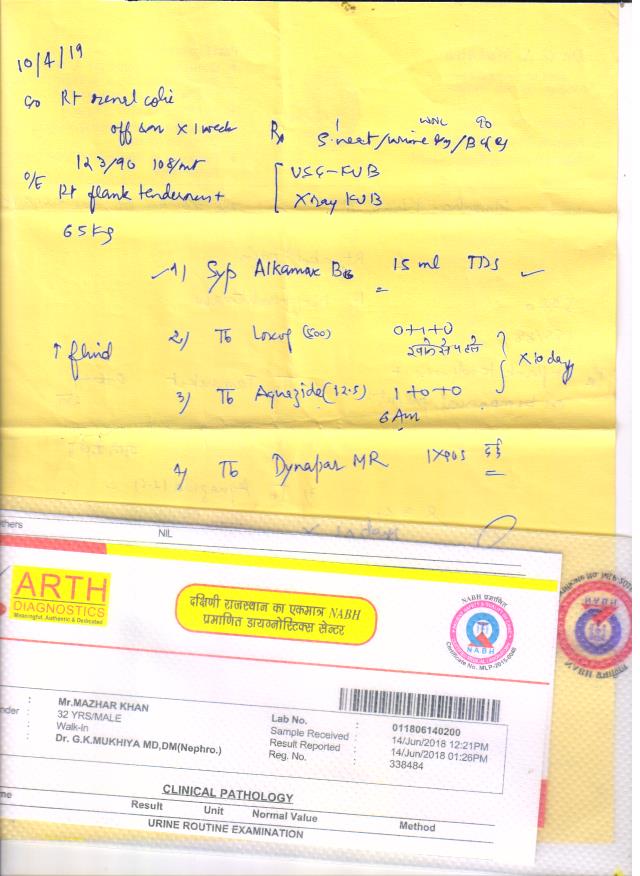 10/4/19
c/o Rt renal colic
off & on x 1 week
Rx
WNL
S. 
/urine
123/90 108/mt
USG-KUB
O/E Rt flank tenderness +
Xray KUB
65 Kg
1) Syp Alkamax B6 15 ml TDS
↑ fluid
2) Tb (500) 0+1+0
x 10 days
3) Tb Aquazide (12.5) 1+0+0
6 Am
4) Tb Dynapar MR 1 x SOS दर्द
thers NIL
ARTH
DIAGNOSTICS
Meaningful, Authentic & Dedicated
दक्षिणी राजस्थान का एकमात्र NABH
प्रमाणित डायग्नोस्टिक्स सेन्टर
NABH
Certificate No. MLP-2015-0046
Mr.MAZHAR KHAN
nder : 32 YRS/MALE
: Walk-In
: Dr. G.K.MUKHIYA MD,DM(Nephro.)
Lab No. : 011806140200
Sample Received : 14/Jun/2018 12:21PM
Result Reported : 14/Jun/2018 01:26PM
Reg. No. : 338484
CLINICAL PATHOLOGY
me Result Unit Normal Value Method
URINE ROUTINE EXAMINATION